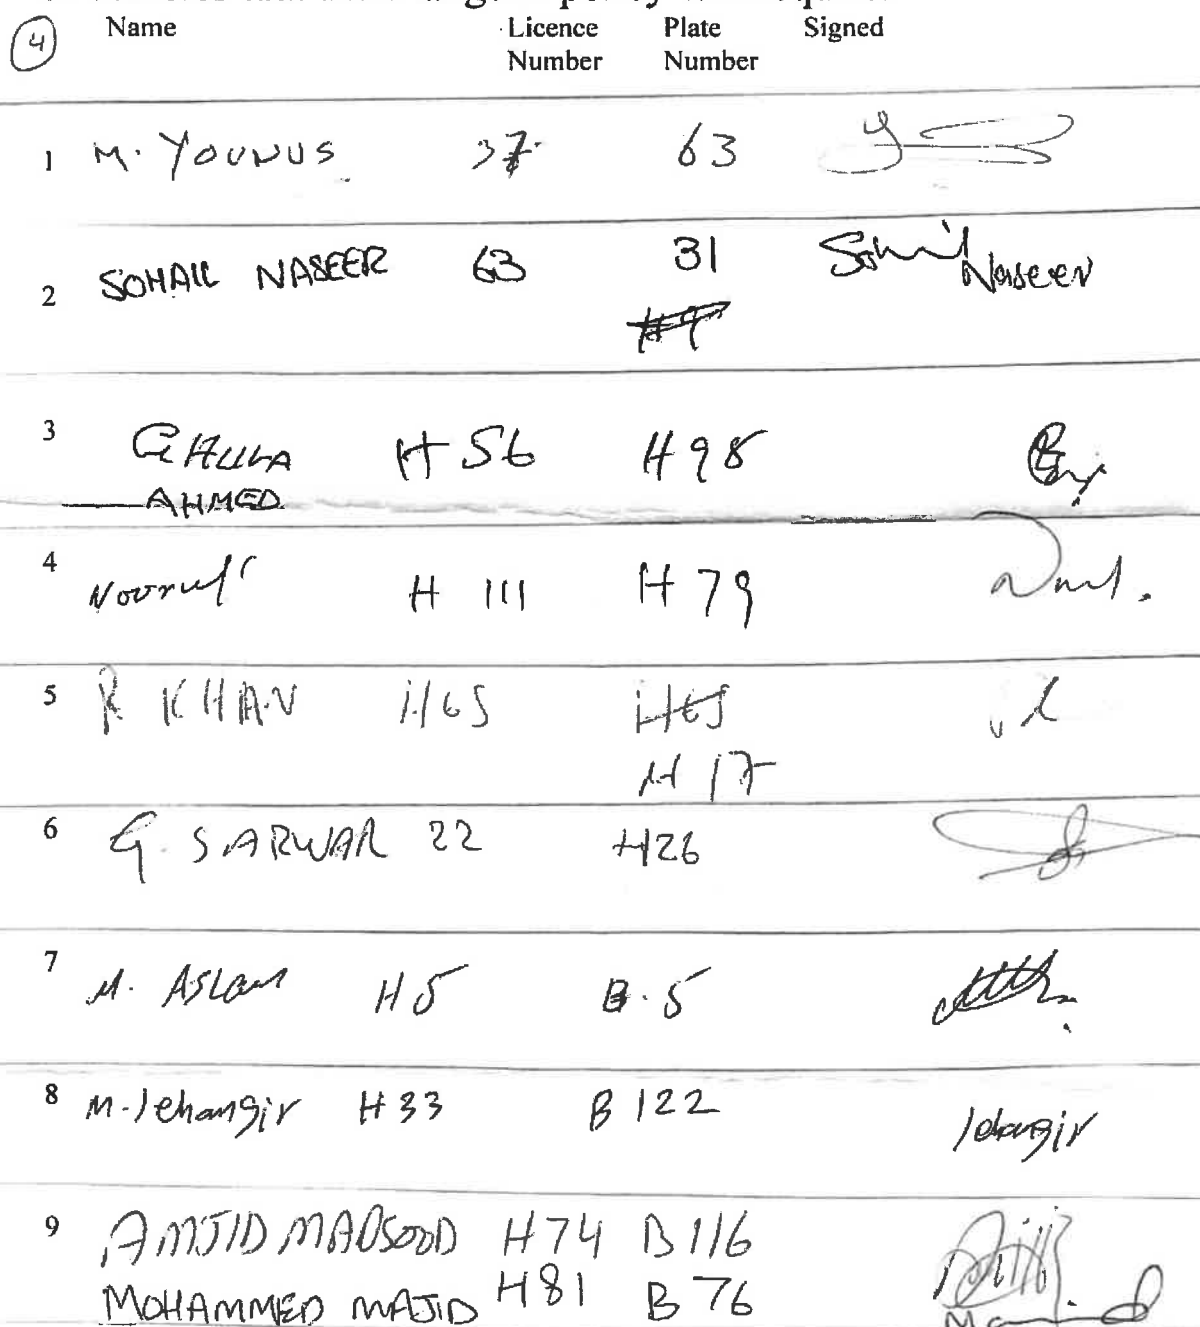 4 Name Licence Number Plate Number Signed
1 M. YOUNUS 37 63
2 SOHAIL NASEER 63 31 Sohail Naseer
H9
3 GHULA H 56 H 98
AHMED
4 H 111 H 79
5 R KHAN H65 H65
H 17
6 G. SARWAR 22 H26
7 M. ASLAM H 5 B. 5
8 M. Jehangir H 33 B 122 Jehangir
9 AMJID MAQSOOD H74 B 116
MOHAMMED MAJID H81 B 76